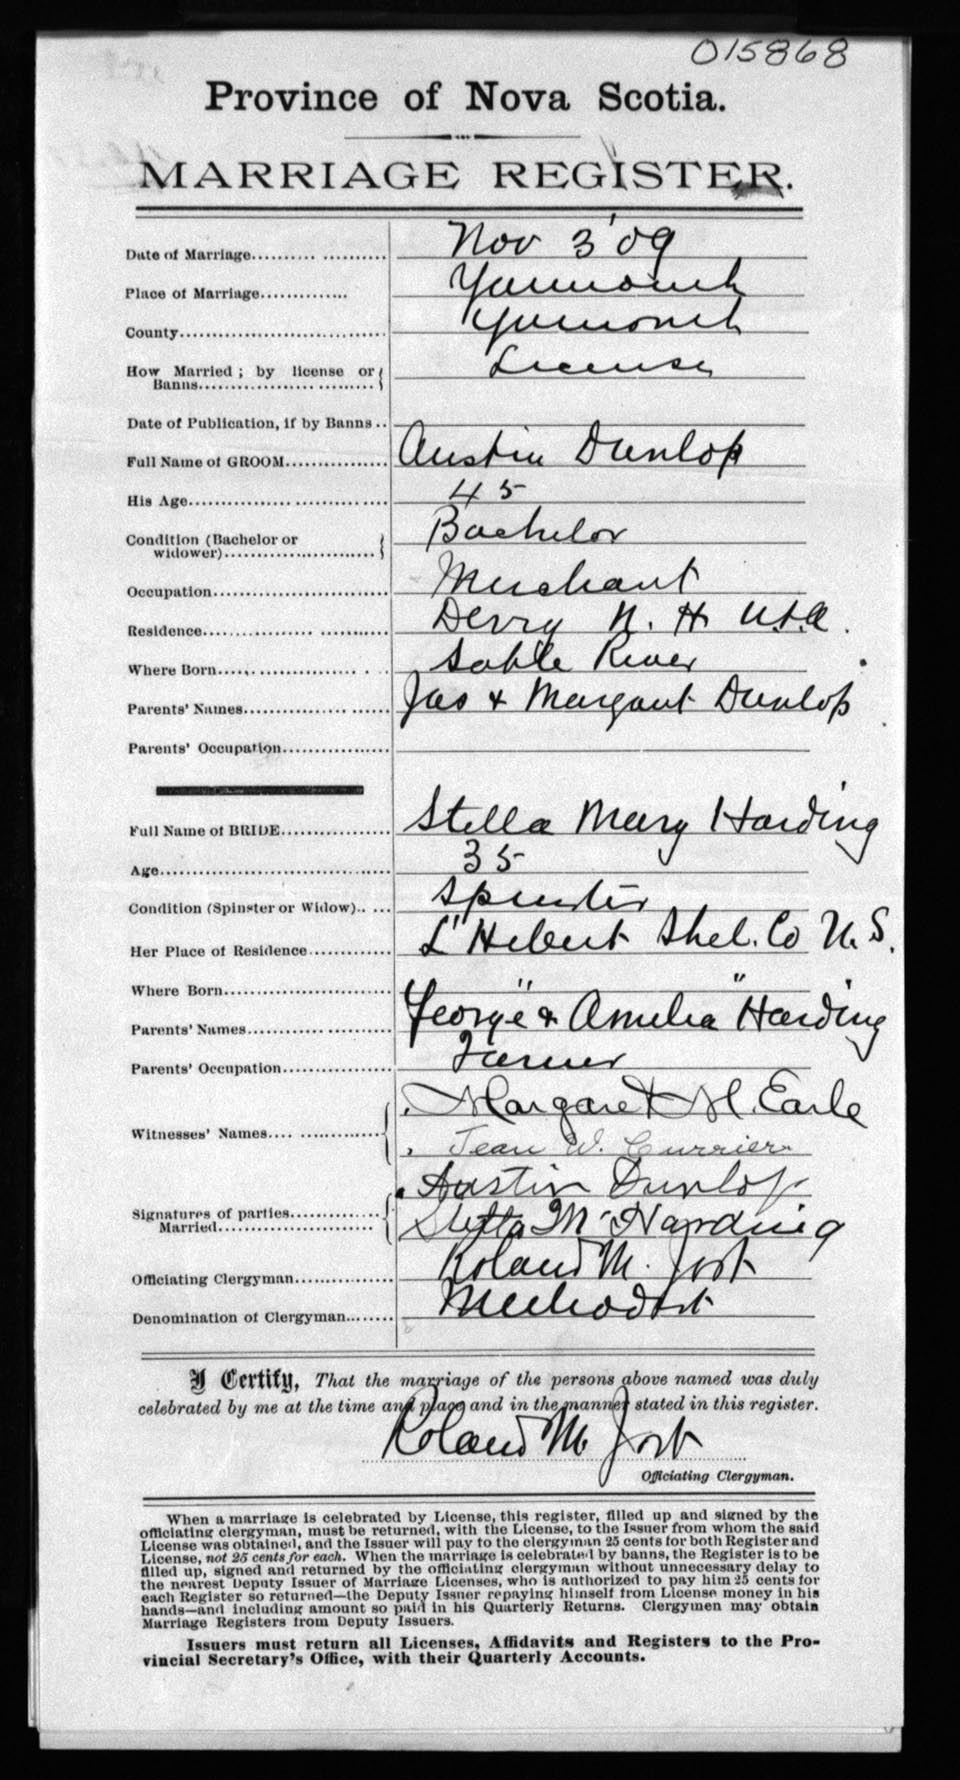 015868
Province of Nova Scotia.
MARRIAGE REGISTER.
Date of Marriage Nov 3 '09
Place of Marriage Yarmouth
County Yarmouth
How Married ; by license or Banns License
Date of Publication, if by Banns
Full Name of GROOM Austin Dunlop
His Age 45
Condition (Bachelor or widower) Bachelor
Occupation Merchant
Residence Derry N. H. U.S.A.
Where Born Sable River
Parents' Names Jas & Margaret Dunlop
Parents' Occupation
Full Name of BRIDE Stella Mary Harding
Age 35
Condition (Spinster or Widow) Spinster
Her Place of Residence L" Hebert Shel. Co N. S.
Where Born " "
Parents' Names George & Amelia Harding
Parents' Occupation Farmer
Witnesses' Names Margaret M. Earle
Jean W. Currier
Signatures of parties Married Austin Dunlop
Stella M Harding
Officiating Clergyman Roland M. Jost
Denomination of Clergyman Methodist
I Certify, That the marriage of the persons above named was duly
celebrated by me at the time and place and in the manner stated in this register.
Roland M Jost
Officiating Clergyman.
When a marriage is celebrated by License, this register, filled up and signed by the
officiating clergyman, must be returned, with the License, to the Issuer from whom the said
License was obtained, and the Issuer will pay to the clergyman 25 cents for both Register and
License, not 25 cents for each. When the marriage is celebrated by banns, the Register is to be
filled up, signed and returned by the officiating clergyman without unnecessary delay to
the nearest Deputy Issuer of Marriage Licenses, who is authorized to pay him 25 cents for
each Register so returned—the Deputy Issuer repaying himself from License money in his
hands—and including amount so paid in his Quarterly Returns. Clergymen may obtain
Marriage Registers from Deputy Issuers.
Issuers must return all Licenses, Affidavits and Registers to the Pro-
vincial Secretary's Office, with their Quarterly Accounts.